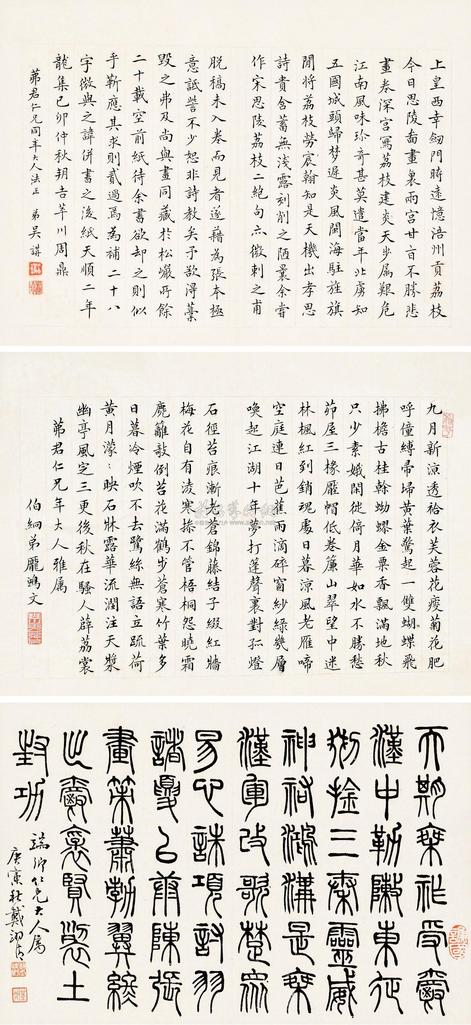 上皇西幸劒門時遠憶涪州貢荔枝
今日思陵畵裏兩宮甘旨不勝悲
畫卷深宮寫荔枝建炎天步属艱危
江南風味珍奇甚莫遣當年北虜知
五國城頭歸夢遲炎風閩海駐旌旗
閒將荔枝勞宸翰知是天機出孝思
詩貴含蓄無淺露刻削之陋曩余嘗
作宋思陵荔枝二絶句六微刺之甫
脱稿未入卷而見者遂藉為張本極
意詆訾不少恕非詩教矣予故得藁
毀之弗及尚與畫同藏於松巖所餘
二十載空前紙待余書欲却之則似
乎靳應其求則貳過焉為補二十八
字倣與之諱併書之後紙天順二年
龍集己卯仲秋朔吉莘川周鼎
茀君仁兄同年大人法正 弟吴講
九月新涼透袷衣芙蓉花瘦菊花肥
呼僮縛帚埽黃葉驚起一雙蝴蝶飛
拂檐古桂幹蚴蟉金粟香飄滿地秋
只少素娥閑徙倚月華如水不勝愁
茆屋三椽雁帽低卷廉山翠望中迷
林楓紅到銷魂處日暮涼風老雁啼
空庭連日芭蕉雨滴碎窗紗綠幾層
喚起江湖十年夢打蓬聲裏對孤燈
石徑苔痕漸老蒼錦藤結子綴紅牆
梅花自有凌寒操不管梧桐怨曉霜
麂籬敧倒苔花滿鶴步蒼寒竹葉多
日暮冷煙吹不去鷺絲無語立疏荷
黃月濛〻映石牀露華流潤注天漿
幽亭風定三更後秋在騷人薜荔裳
茀君仁兄年大人雅屬
伯絅弟龎鴻文
天期乘祚受爵
漢中勒陳東征
剟擒三秦靈威
神祐鴻溝是乘
漢軍改歌楚衆
易心誅項討羽
諸夏以康陳張
畫策蕭勃翼終
出爵褒賢裂土
封功
瑞卿仁兄大人屬
庚寅秋戴翊清